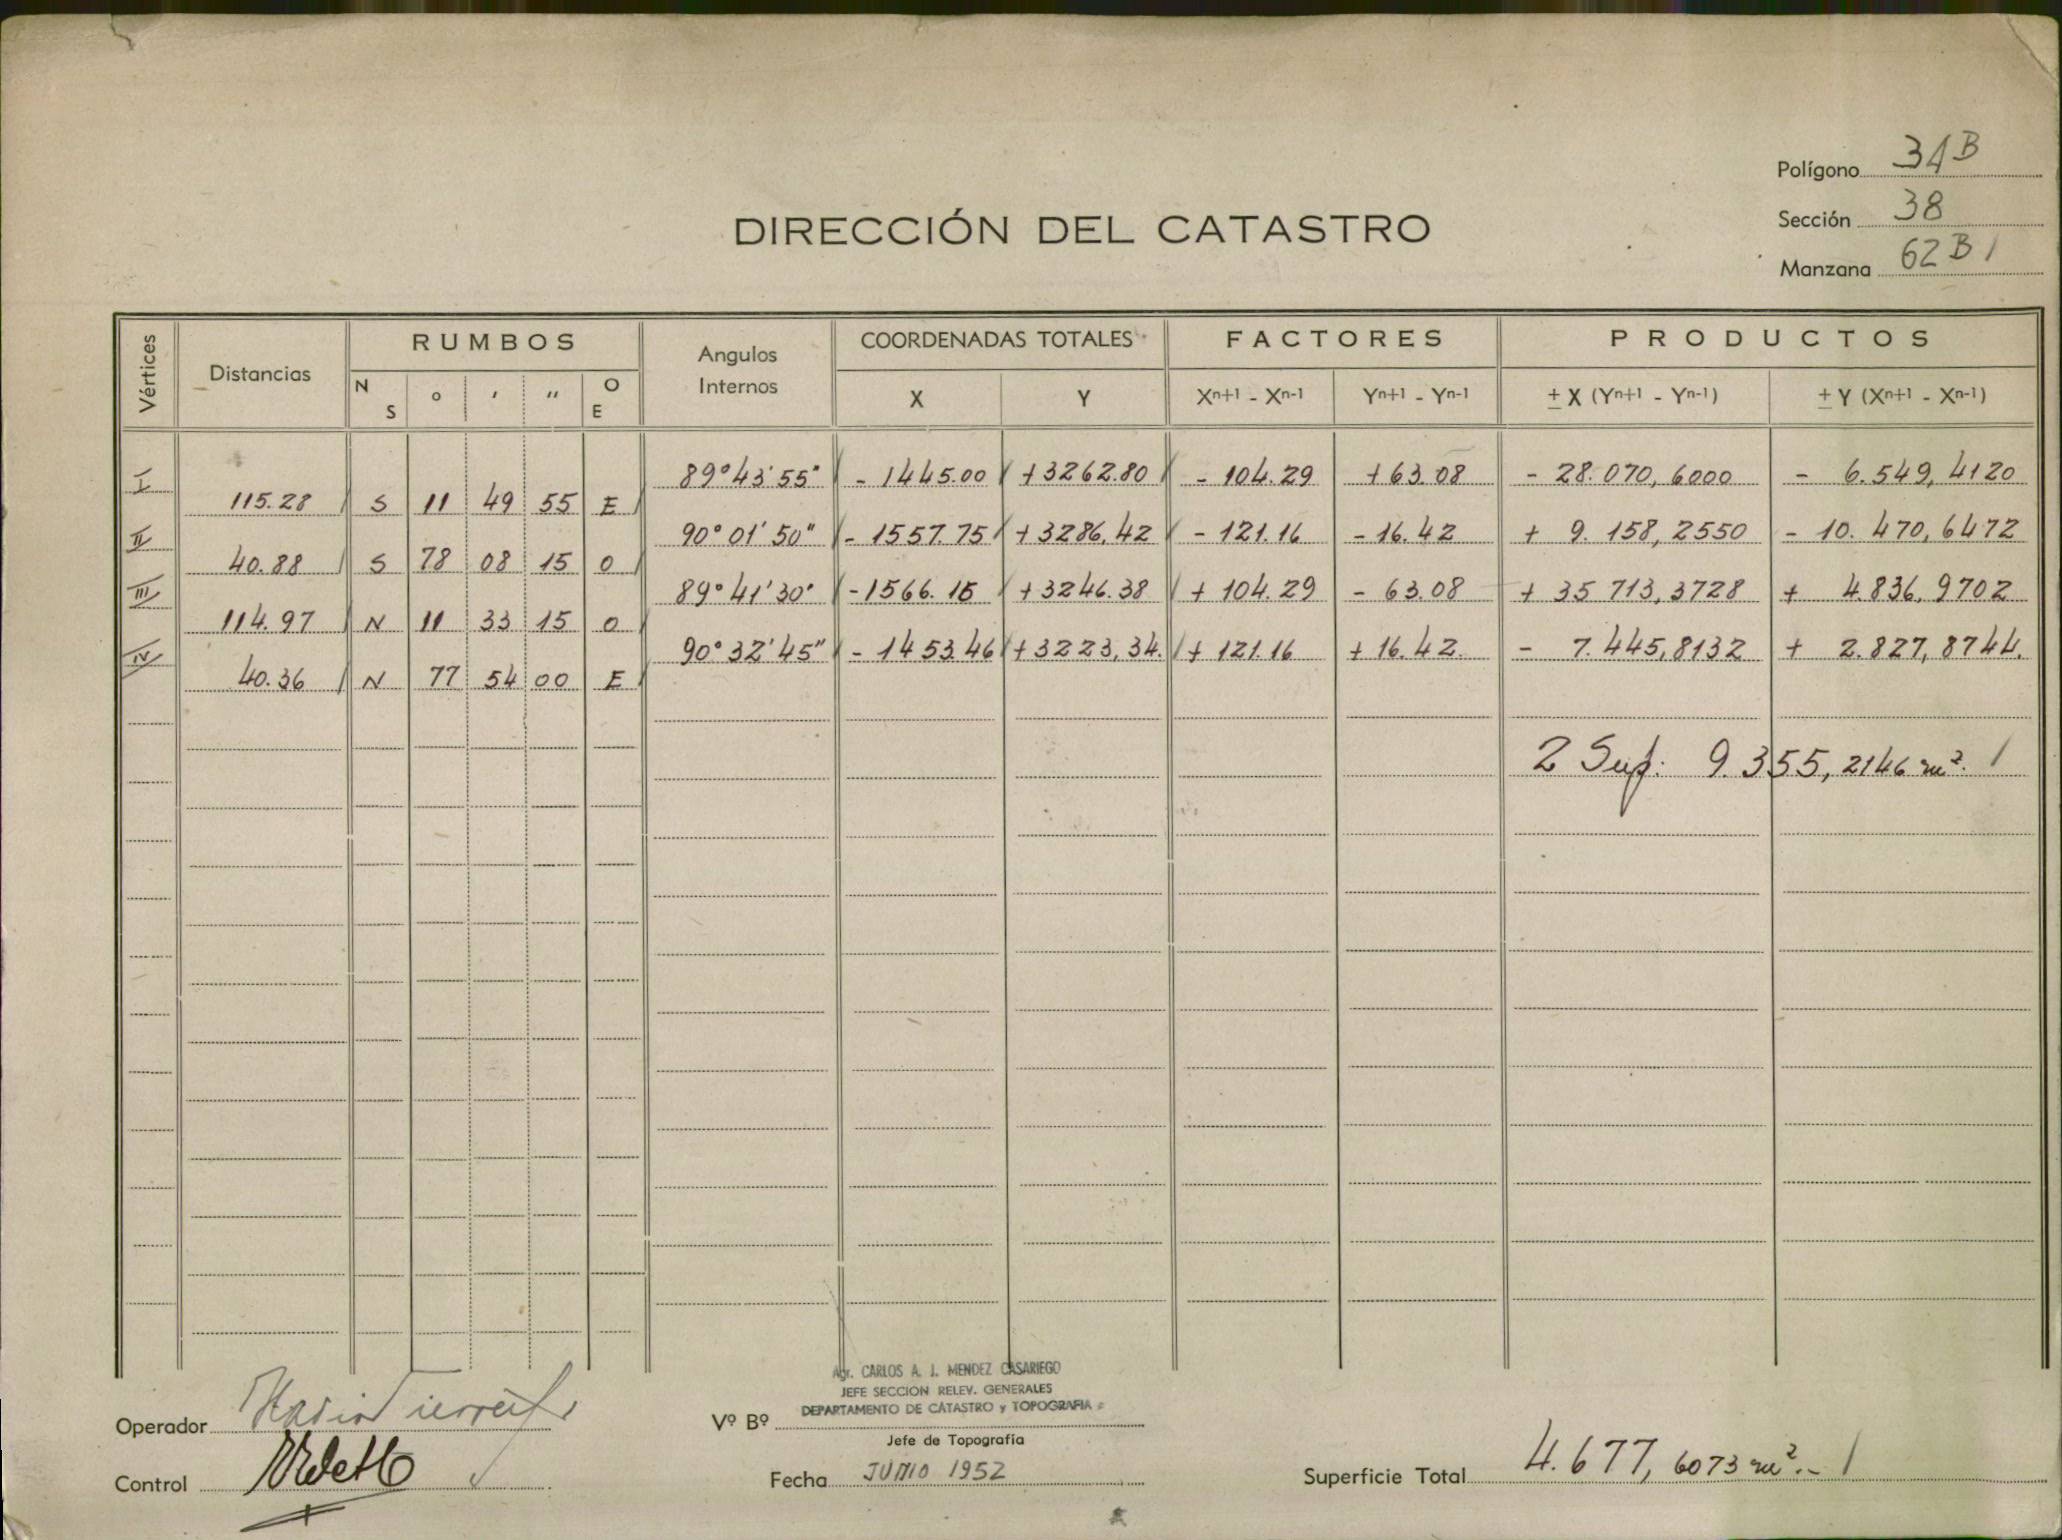 Polígono 34B
Sección 38
Manzana 62 B 1
DIRECCIÓN DEL CATASTRO
Vértices Distancias RUMBOS Angulos Internos COORDENADAS TOTALES FACTORES PRODUCTOS
N S ° ' " O E X Y Xn+1 - Xn-1 Yn+1 - Yn-1 ± X (Yn+1 - Yn-1) ± Y (Xn+1 - Xn-1)
I 89°43'55" - 1445.00 +3262.80 - 104.29 +63.08 - 28.070,6000 - 6.549,4120
115.28 S 11 49 55 E
II 90°01'50" - 1557.75 +3286,42 - 121.16 - 16.42 + 9.158,2550 - 10.470,6472
40.88 S 78 08 15 O
III 89°41'30" -1566.15 +3246.38 + 104.29 - 63.08 + 35 713,3728 + 4.836,9702
114.97 N 11 33 15 O
IV 90°32'45" - 1453.46 +3223,34. + 121.16 + 16.42. - 7.445,8132 + 2.827,8744.
40.36 N 77 54 00 E
2 Sup: 9.355,2146 m². /
Agr. CARLOS A. J. MENDEZ CASARIEGO
JEFE SECCION RELEV. GENERALES
DEPARTAMENTO DE CATASTRO y TOPOGRAFIA
Operador
Vº Bº
Jefe de Topografía
Control
Fecha JUNIO 1952
Superficie Total 4.677,6073 m².- /